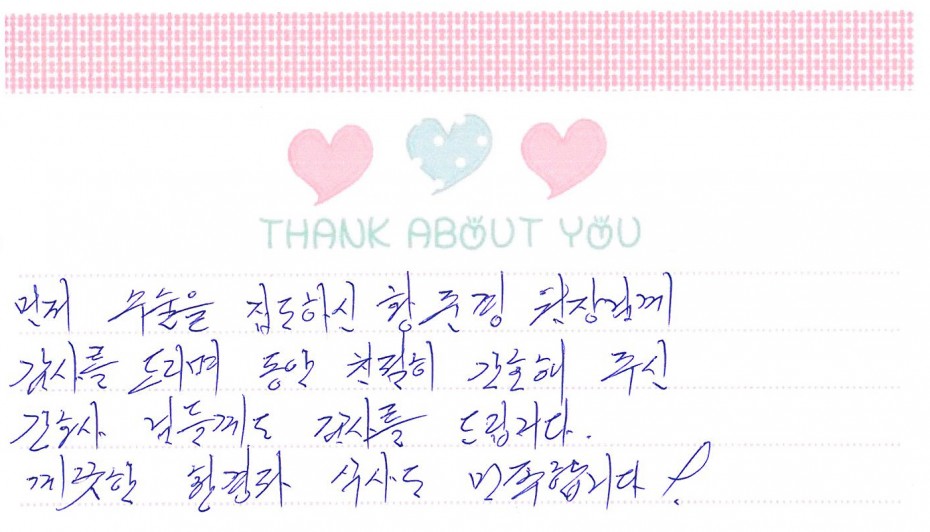 THANK ABOUT YOU
먼저 수술을 집도하신 황 원장님께
감사를 드리며 동안 친절히 간호해 주신
간호사 님들께도 감사를 드립니다.
깨끗한 환경과 식사도 만족합니다!